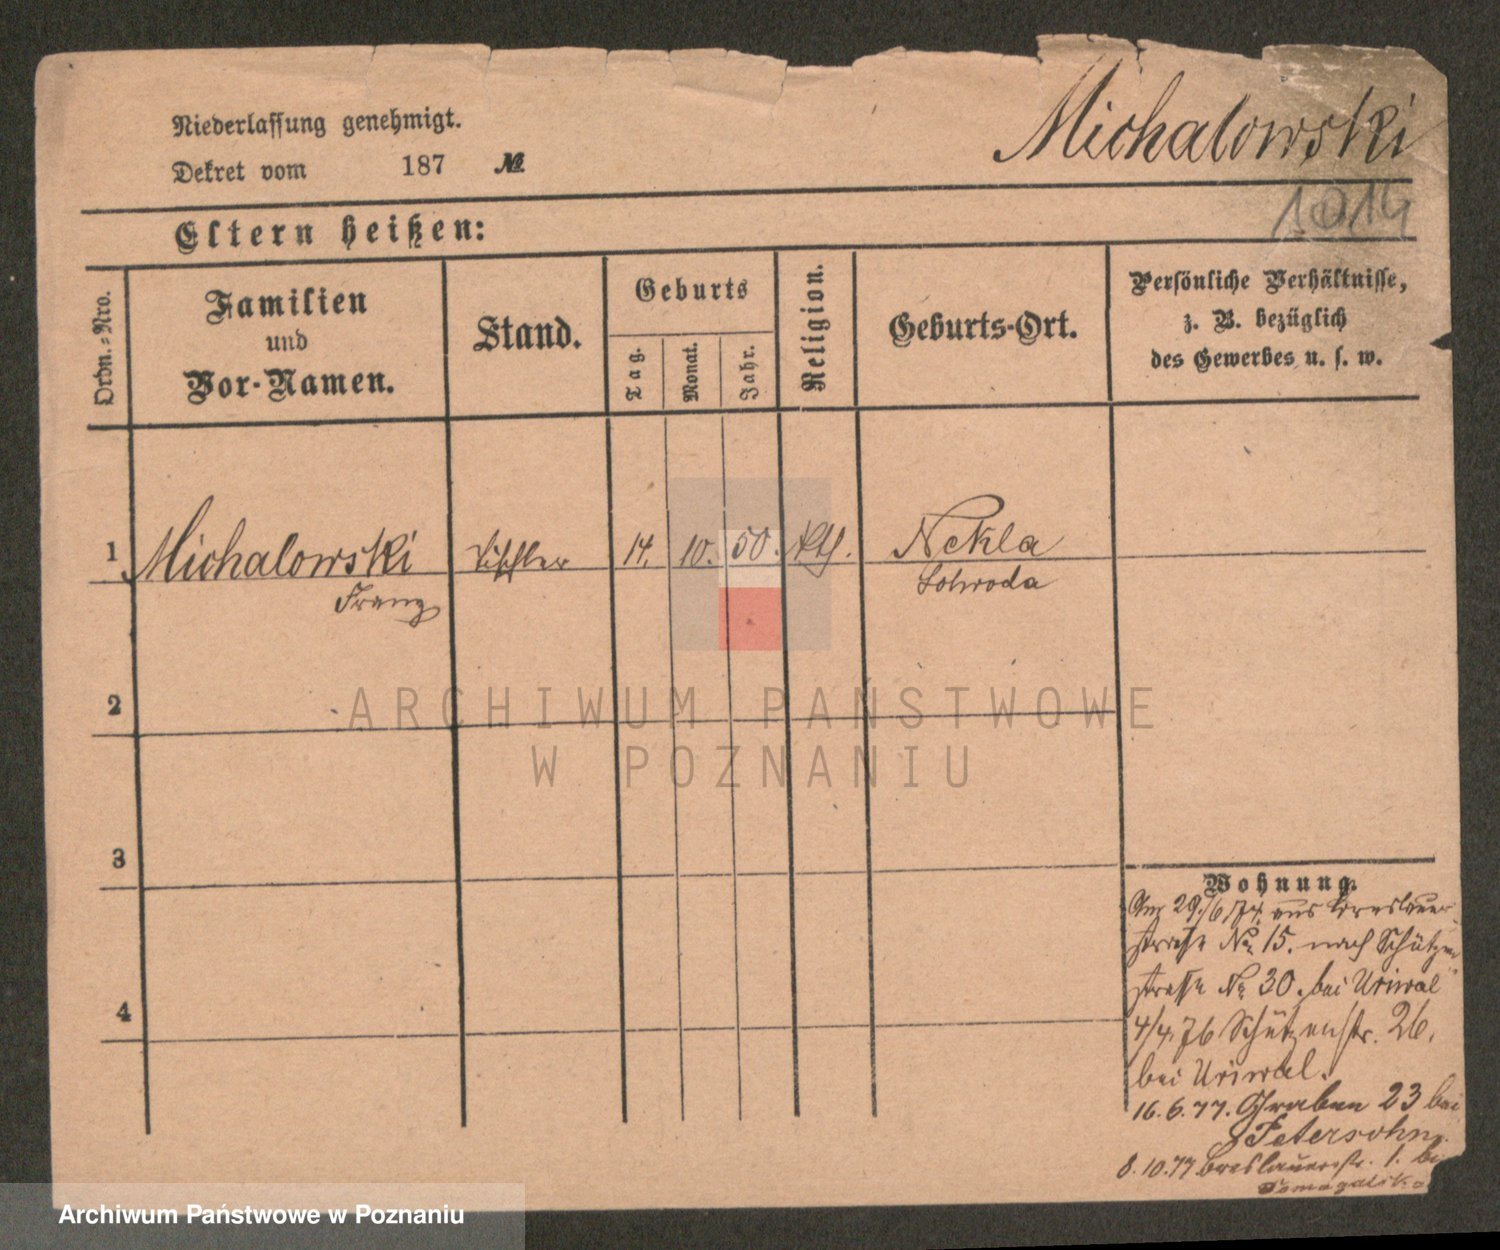 Michalowski
Niederlassung genehmigt.
Dekret vom 187 №
1014
Eltern heißen:
Ordn.-Nro.
Familien
und
Vor-Namen.
Stand.
Geburts
Tag.
Monat.
Jahr.
Religion.
Geburts-Ort.
Persönliche Verhältnisse,
z. B. bezüglich
des Gewerbes u. s. w.
1 Michalowski Tischler 14. 10. 50. Kth. Nekla
Franz Schroda
2
3
4
Wohnung.
Am 29/6 74. aus Breslauer
straße No 15. nach Schützen
straße No 30. bei Uriwal
4/4. 76 Schützenstr. 26.
bei Uriwal.
16.6.77. Graben 23 bei
Petersohn.
8.10.77 Breslauerstr. 1. bei
ARCHIWUM PAŃSTWOWE
W POZNANIU
Archiwum Państwowe w Poznaniu